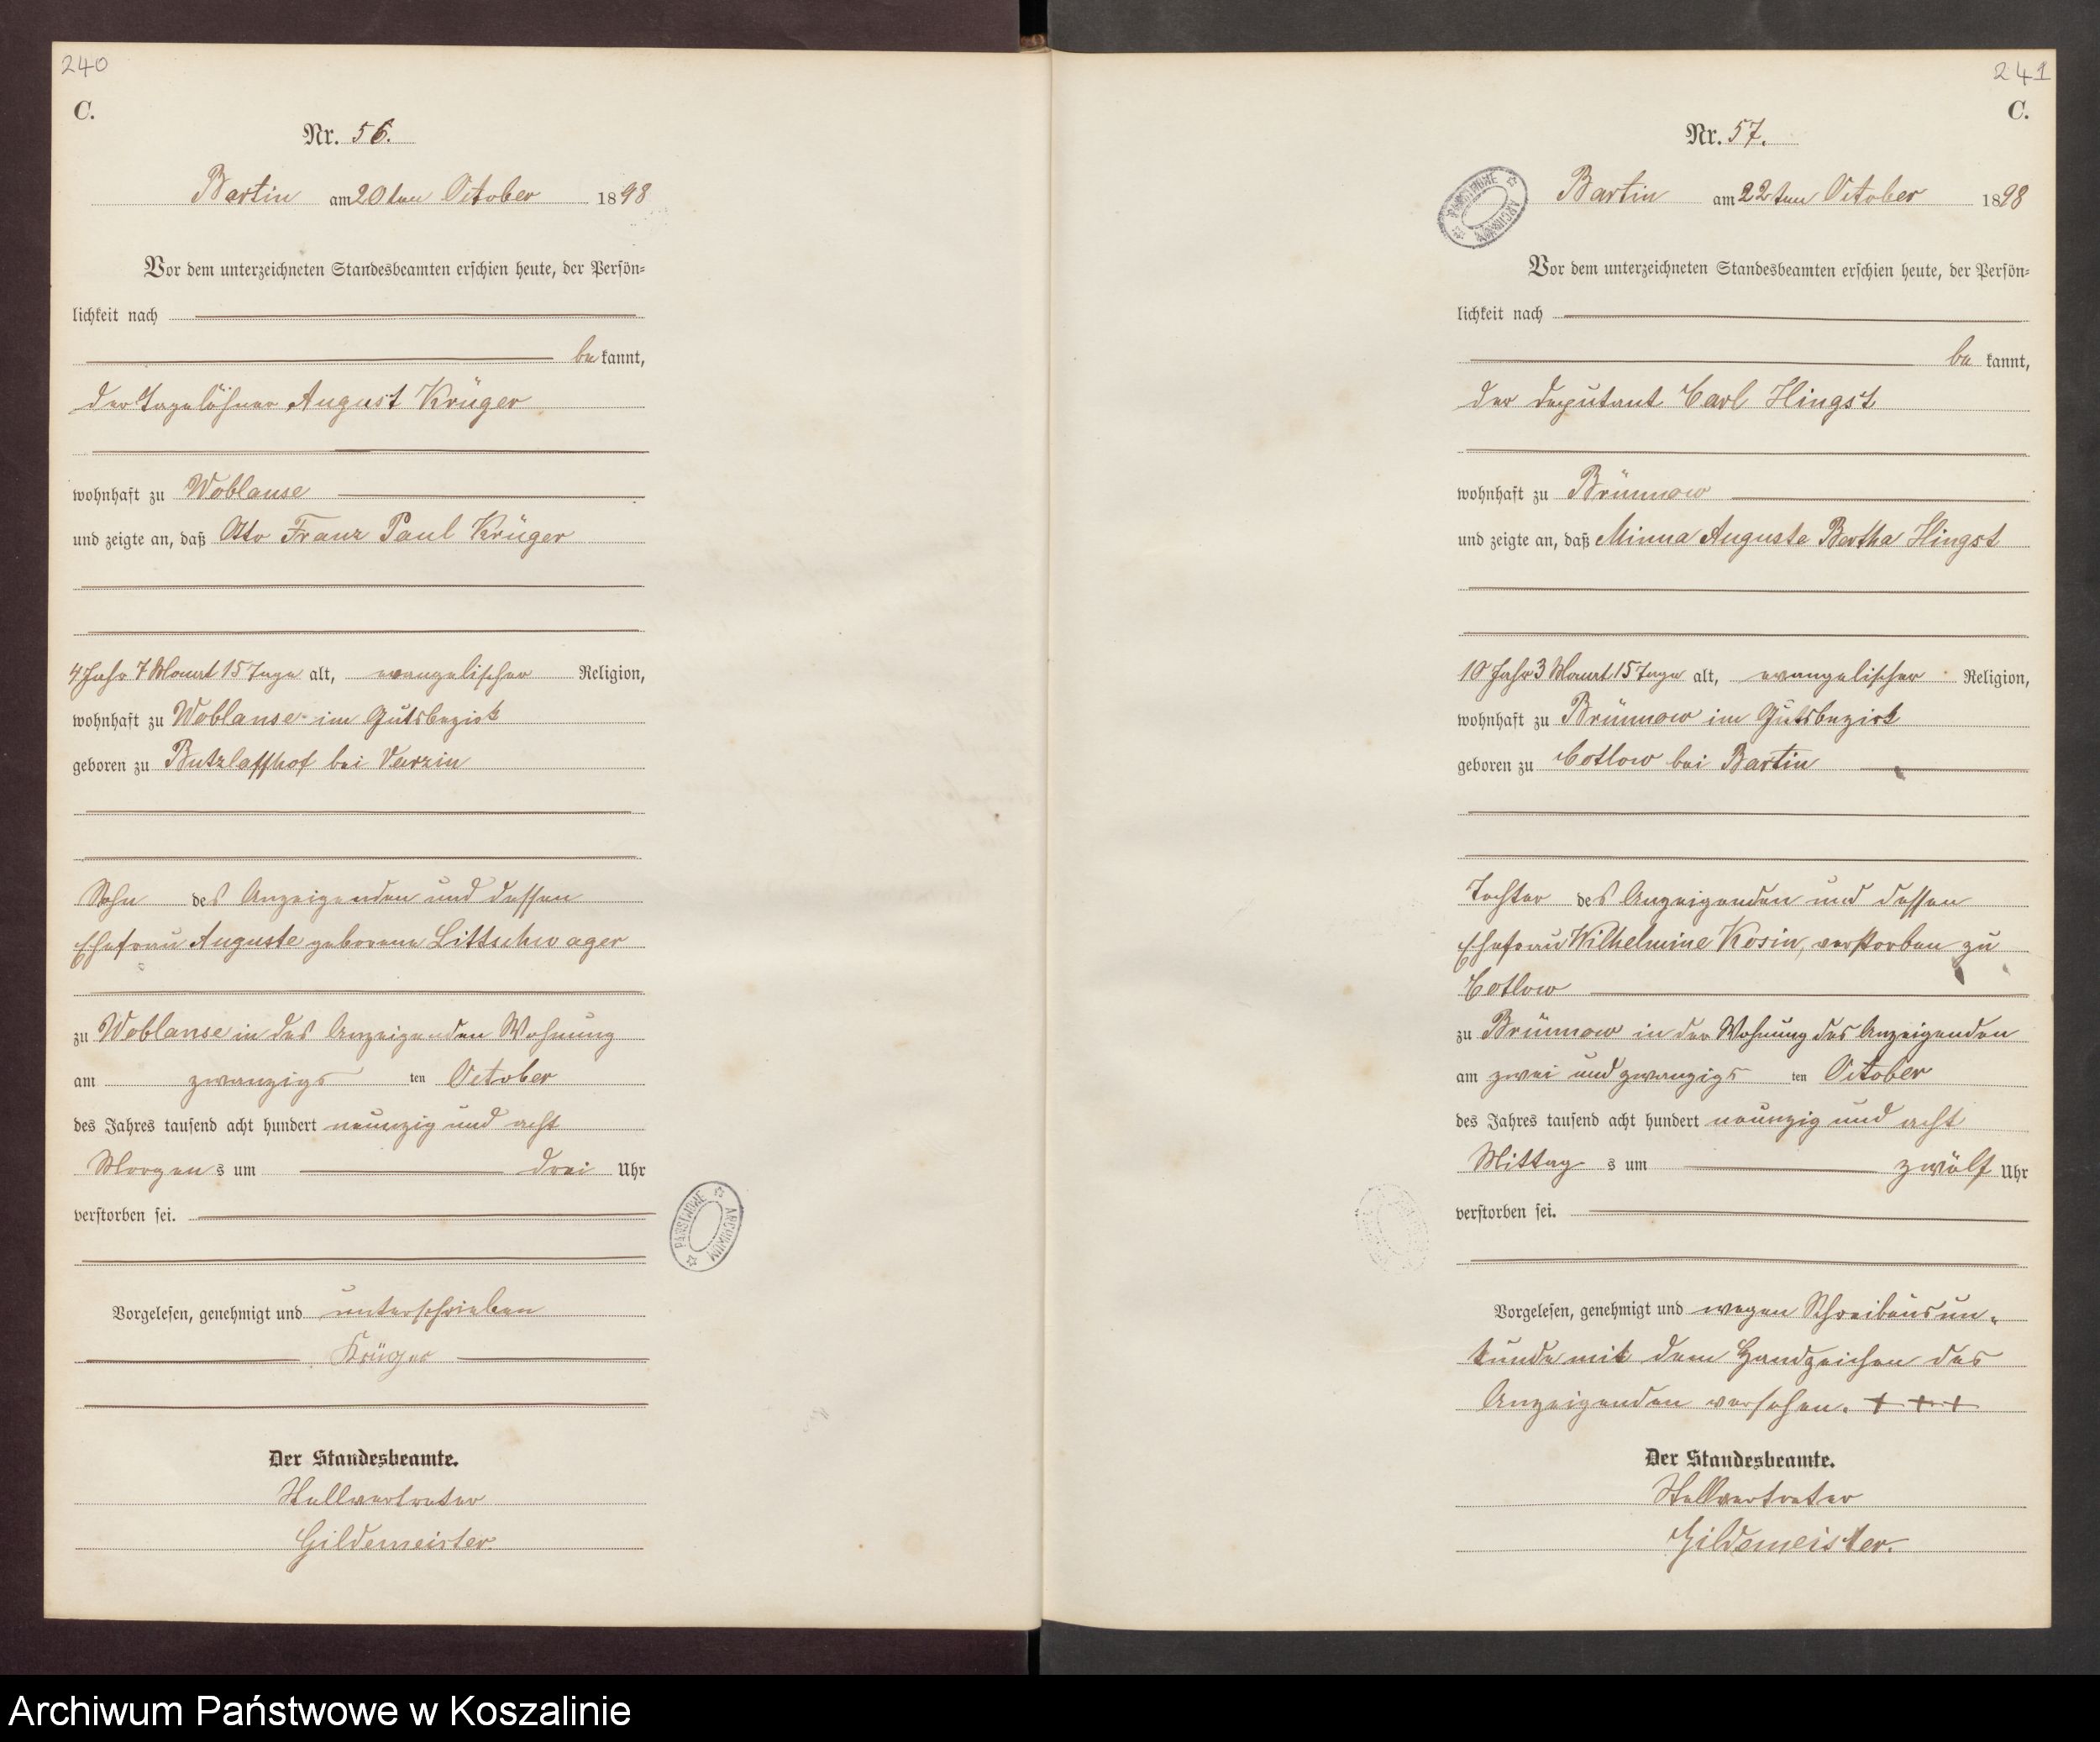 240
C.
Nr. 56.
Bartin am 20ten October 1898
Vor dem unterzeichneten Standesbeamten erschien heute, der Persön=
lichkeit nach
be kannt,
der Tagelöhner August Krüger
wohnhaft zu Woblanse
und zeigte an, daß Otto Franz Paul Krüger
4 Jahr 7 Monat 15 Tage alt, evangelischer Religion,
wohnhaft zu Woblanse im Gutsbezirk
geboren zu Butzlaffhof bei Varzin
Sohn des Anzeigenden und dessen
Ehefrau Auguste geborene Littschwager
zu Woblanse in des Anzeigenden Wohnung
am zwanzigs ten October
des Jahres tausend acht hundert neunzig und acht
Morgen s um drei Uhr
verstorben sei.
Vorgelesen, genehmigt und unterschrieben
Krüger
Der Standesbeamte.
Stellvertreter
Gildemeister.
PAŃSTWOWE ARCHIWUM
241
C.
Nr. 57.
PAŃSTWOWE ARCHIWUM
Bartin am 22ten October 1898
Vor dem unterzeichneten Standesbeamten erschien heute, der Persön=
lichkeit nach
be kannt,
der Deputant Carl Hingst
wohnhaft zu Brünnow
und zeigte an, daß Minna Auguste Bertha Hingst
10 Jahr 3 Monat 15 Tage alt, evangelischer Religion,
wohnhaft zu Brünnow im Gutsbezirk
geboren zu Cotlow bei Bartin
Tochter des Anzeigenden und dessen
Ehefrau Wilhelmine Kosin, verstorben zu
Cotlow
zu Brünnow in der Wohnung des Anzeigenden
am zwei und zwanzigs ten October
des Jahres tausend acht hundert neunzig und acht
Mittag s um zwölf Uhr
verstorben sei.
Vorgelesen, genehmigt und wegen Schreibensun=
kunde mit dem Handzeichen des
Anzeigenden versehen. + + +
Der Standesbeamte.
Stellvertreter
Gildemeister.
Archiwum Państwowe w Koszalinie